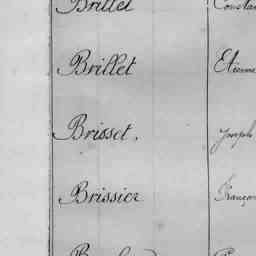 Brillet Constan
Brillet Etienne
Brisset. Joseph
Brissier Françoi